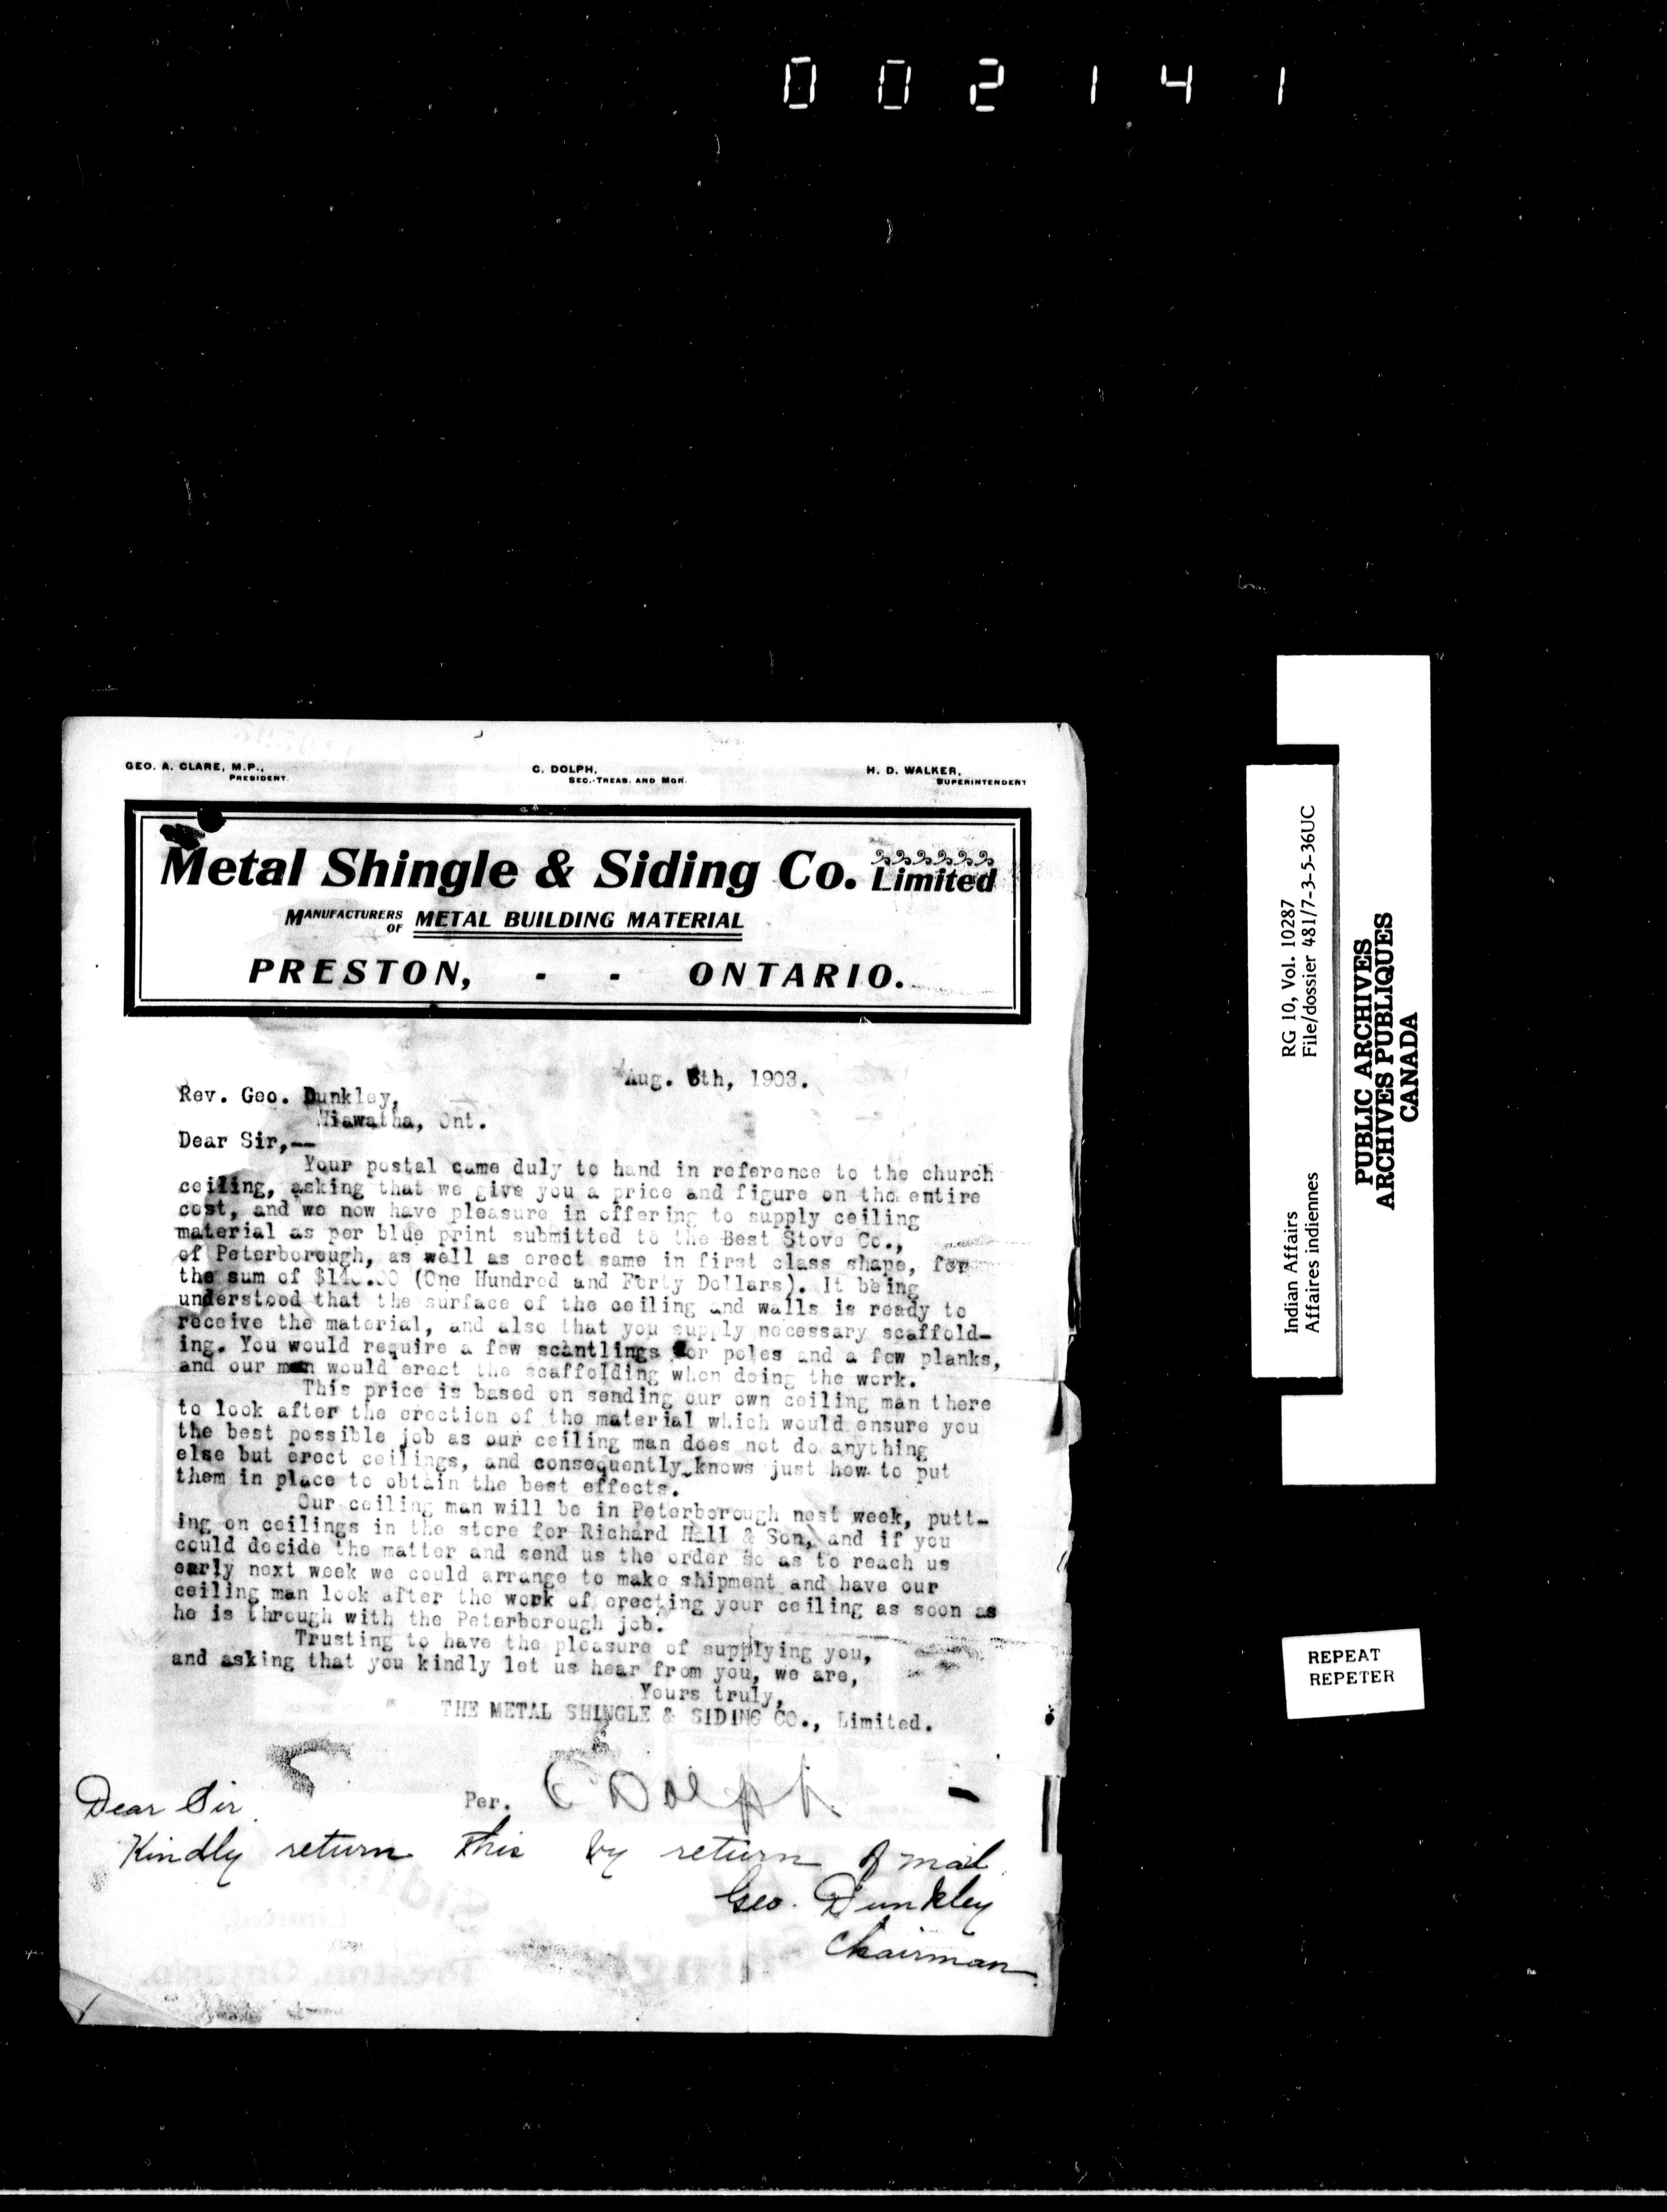 002141
GEO. A. CLARE, M.P.,
PRESIDENT.
C. DOLPH,
SEC.-TREAS. AND MGR.
H. D. WALKER,
SUPERINTENDENT
Metal Shingle & Siding Co. Limited
MANUFACTURERS OF METAL BUILDING MATERIAL
PRESTON, - - ONTARIO.
Aug. th, 1903.
Rev. Geo. Dunkley,
Hiawatha, Ont.
Dear Sir,--
Your postal came duly to hand in reference to the church
ceiling, asking that we give you a price and figure on the entire
cost, and we now have pleasure in offering to supply ceiling
material as per blue print submitted to the Best Stove Co.,
of Peterborough, as well as erect same in first class shape, for
the sum of $140.00 (One Hundred and Forty Dollars). It being
understood that the surface of the ceiling and walls is ready to
receive the material, and also that you supply necessary scaffold-
ing. You would require a few scantlings for poles and a few planks,
and our man would erect the scaffolding when doing the work.
This price is based on sending our own ceiling man there
to look after the erection of the material which would ensure you
the best possible job as our ceiling man does not do anything
else but erect ceilings, and consequently knows just how to put
them in place to obtain the best effects.
Our ceiling man will be in Peterborough nest week, putt-
ing on ceilings in the store for Richard Hall & Son, and if you
could decide the matter and send us the order so as to reach us
early next week we could arrange to make shipment and have our
ceiling man look after the work of erecting your ceiling as soon as
he is through with the Peterborough job.
Trusting to have the pleasure of supplying you,
and asking that you kindly let us hear from you, we are,
Yours truly,
THE METAL SHINGLE & SIDING CO., Limited.
Per. C Dolph
Dear Sir
Kindly return this by return of mail.
Geo. Dunkley
Chairman
Indian Affairs RG 10, Vol. 10287
Affaires indiennes File/dossier 481/7-3-5-36UC
PUBLIC ARCHIVES
ARCHIVES PUBLIQUES
CANADA
REPEAT
REPETER